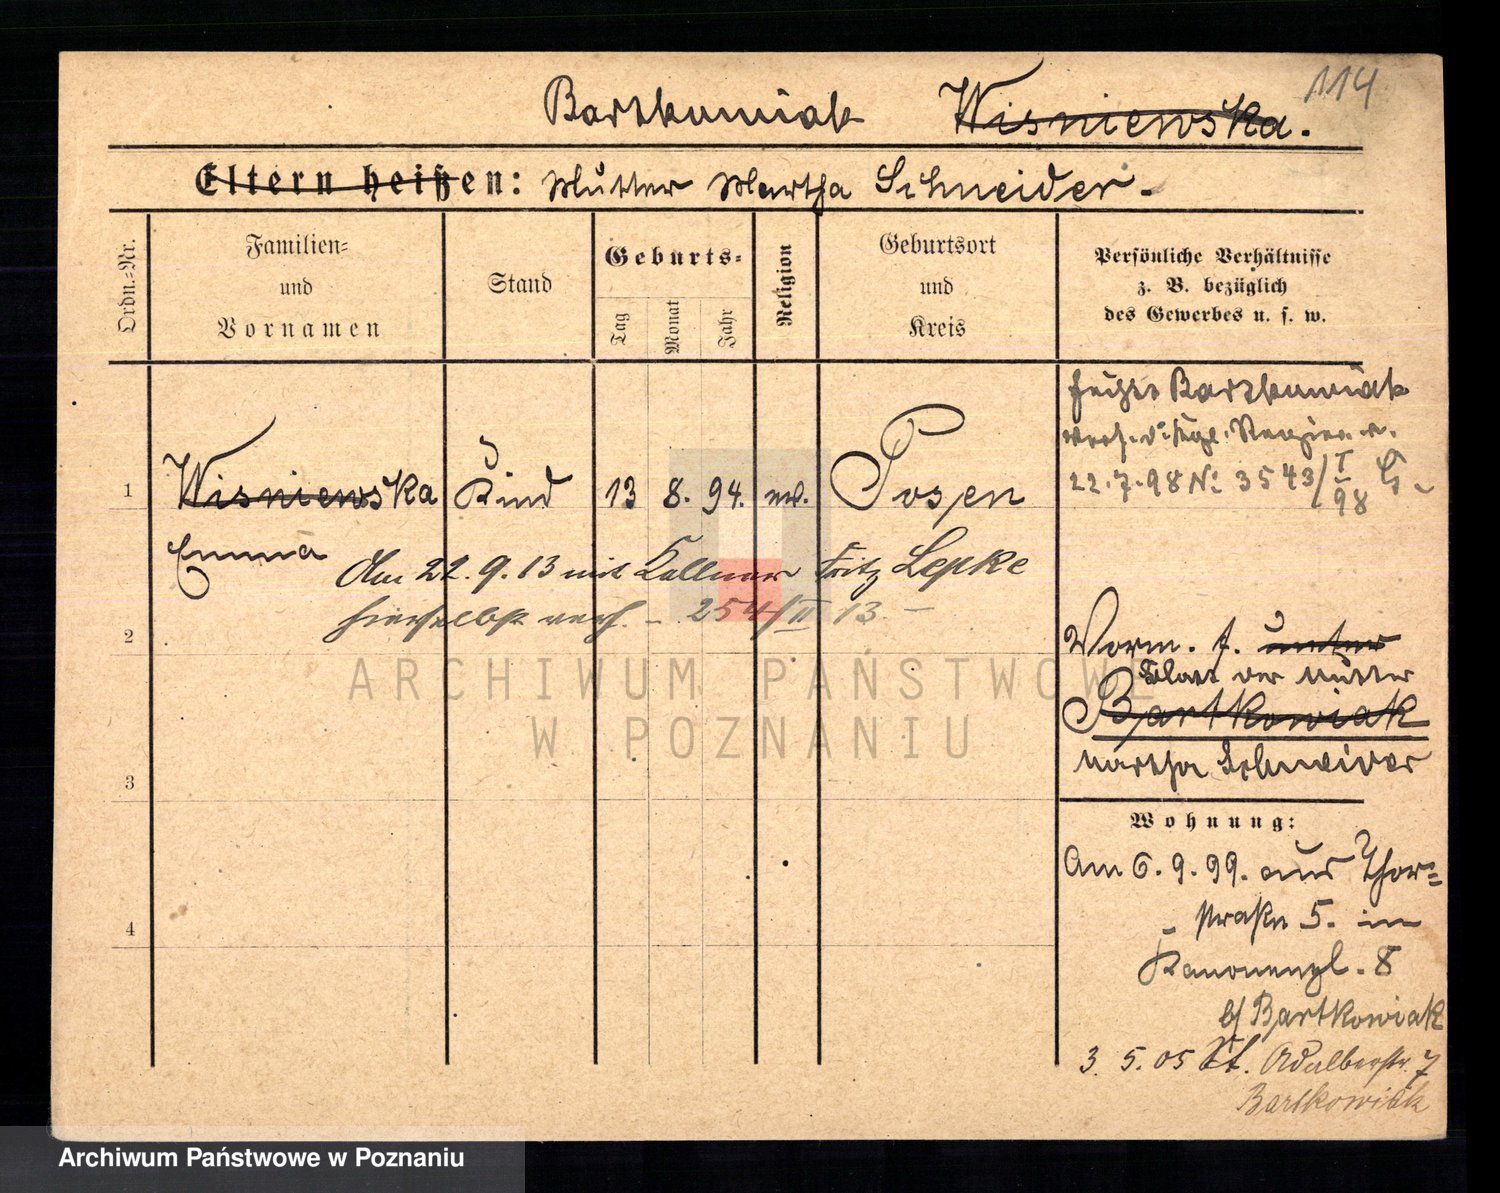 114
Bartkowiak Wisniewska.
Eltern heißen: Mutter Martha Schneider.
Ordn.=Nr.
Familien=
und
Vornamen
Stand
Geburts=
Tag
Monat
Jahr
Religion
Geburtsort
und
Kreis
Persönliche Verhältnisse
z. B. bezüglich
des Gewerbes u. s. w.
1 Wisniewska Kind 13 8. 94. Posen
Emma
heißt Bartkowiak
Kgl.
22.7.98 No 3543/I 98
Am 22.9.13 mit Kellner Fritz Lepke
hierselbst verh. - 254/II 13 -
2
Vorm. f. unter
Blatt der Mutter
Bartkowiak
Martha Schneider
3
4
Wohnung:
Am 6.9.99. aus Thor=
straße 5. in
Kanonenpl. 8
b/ Bartkowiak
3. 5. 05 St. Adalbertstr. 7
Bartkowiak
ARCHIWUM PAŃSTWOWE
W POZNANIU
Archiwum Państwowe w Poznaniu